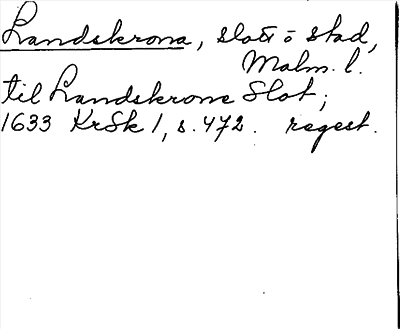 Landskrona, slott o stad,
Malm. l.
til Landskrone Slot;
1633 KrSk 1, s. 472. regest.